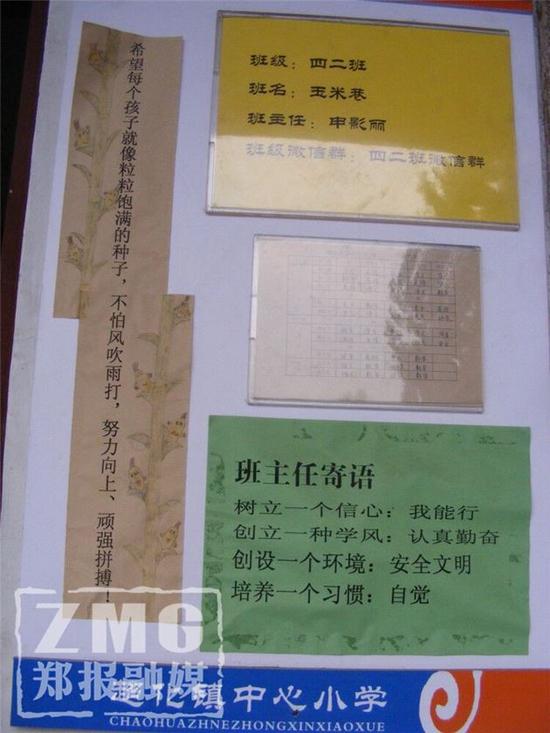 希望每个孩子就像粒粒饱满的种子，不怕风吹雨打，努力向上、顽强拼搏！
班级：四二班
班名：玉米巷
班主任：申影丽
班级微信群：四二班微信群
班主任寄语
树立一个信心：我能行
创立一种学风：认真勤奋
创设一个环境：安全文明
培养一个习惯：自觉
ZMG
郑报融媒
超化镇中心小学
CHAOHUAZHNEZHONGXINXIAOXUE